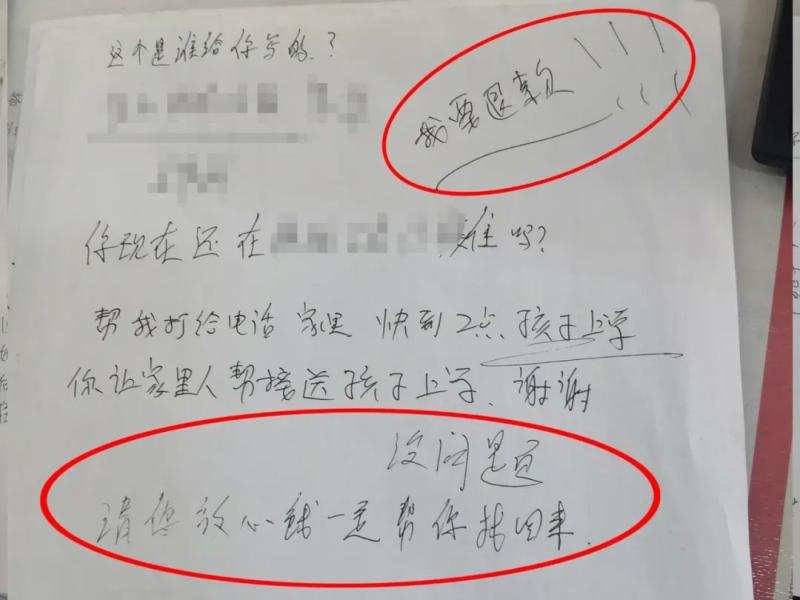 这个是谁给你写的.?
我要退款!!!
你现在还在 难吗?
帮我打给电话 家里 快到2点、孩子上学
你让家里人帮接送孩子上学、谢谢
没问题
请您放心钱一定帮你找回来.